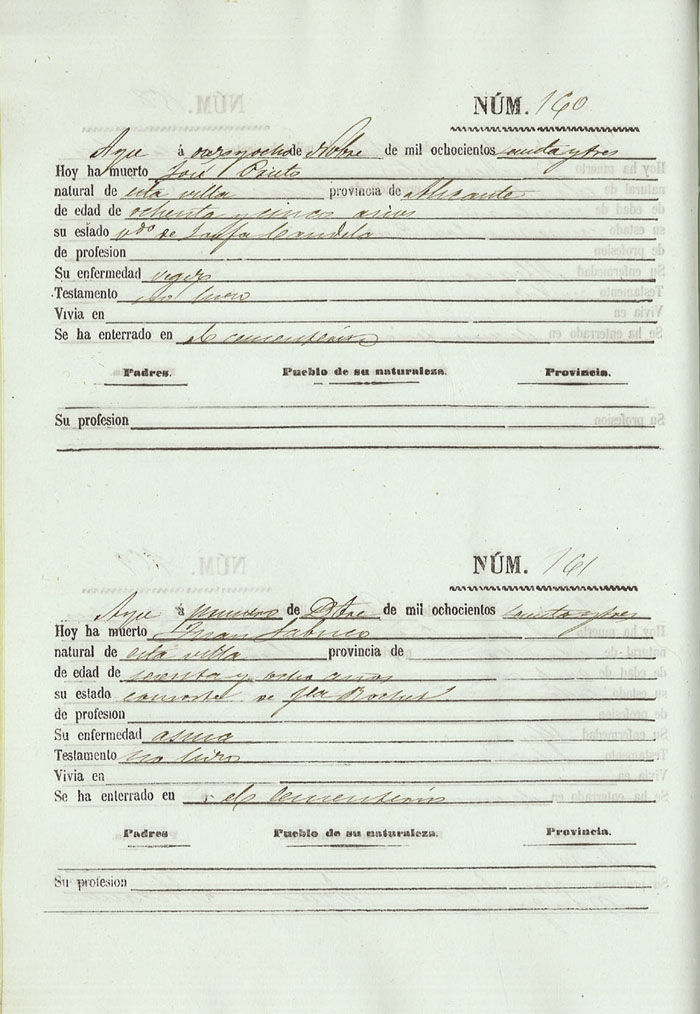 NÚM. 160
Aspe á de Nobre de mil ochocientos senta y tres
Hoy ha muerto José Prieto
natural de esta villa provincia de Alicante
de edad de ochenta y cinco años
su estado vdo de Candela
de profesion
Su enfermedad vegez
Testamento no hizo
Vivia en
Se ha enterrado en el cementerio
Padres. Pueblo de su naturaleza. Provincia.
Su profesion
NÚM. 161
Aspe á primero de Dbre de mil ochocientos senta y tres
Hoy ha muerto
natural de esta villa provincia de
de edad de senta y ocho años
su estado consorte de
de profesion
Su enfermedad asma
Testamento no hizo
Vivia en
Se ha enterrado en el Cementerio
Padres Pueblo de su naturaleza. Provincia.
Su profesion